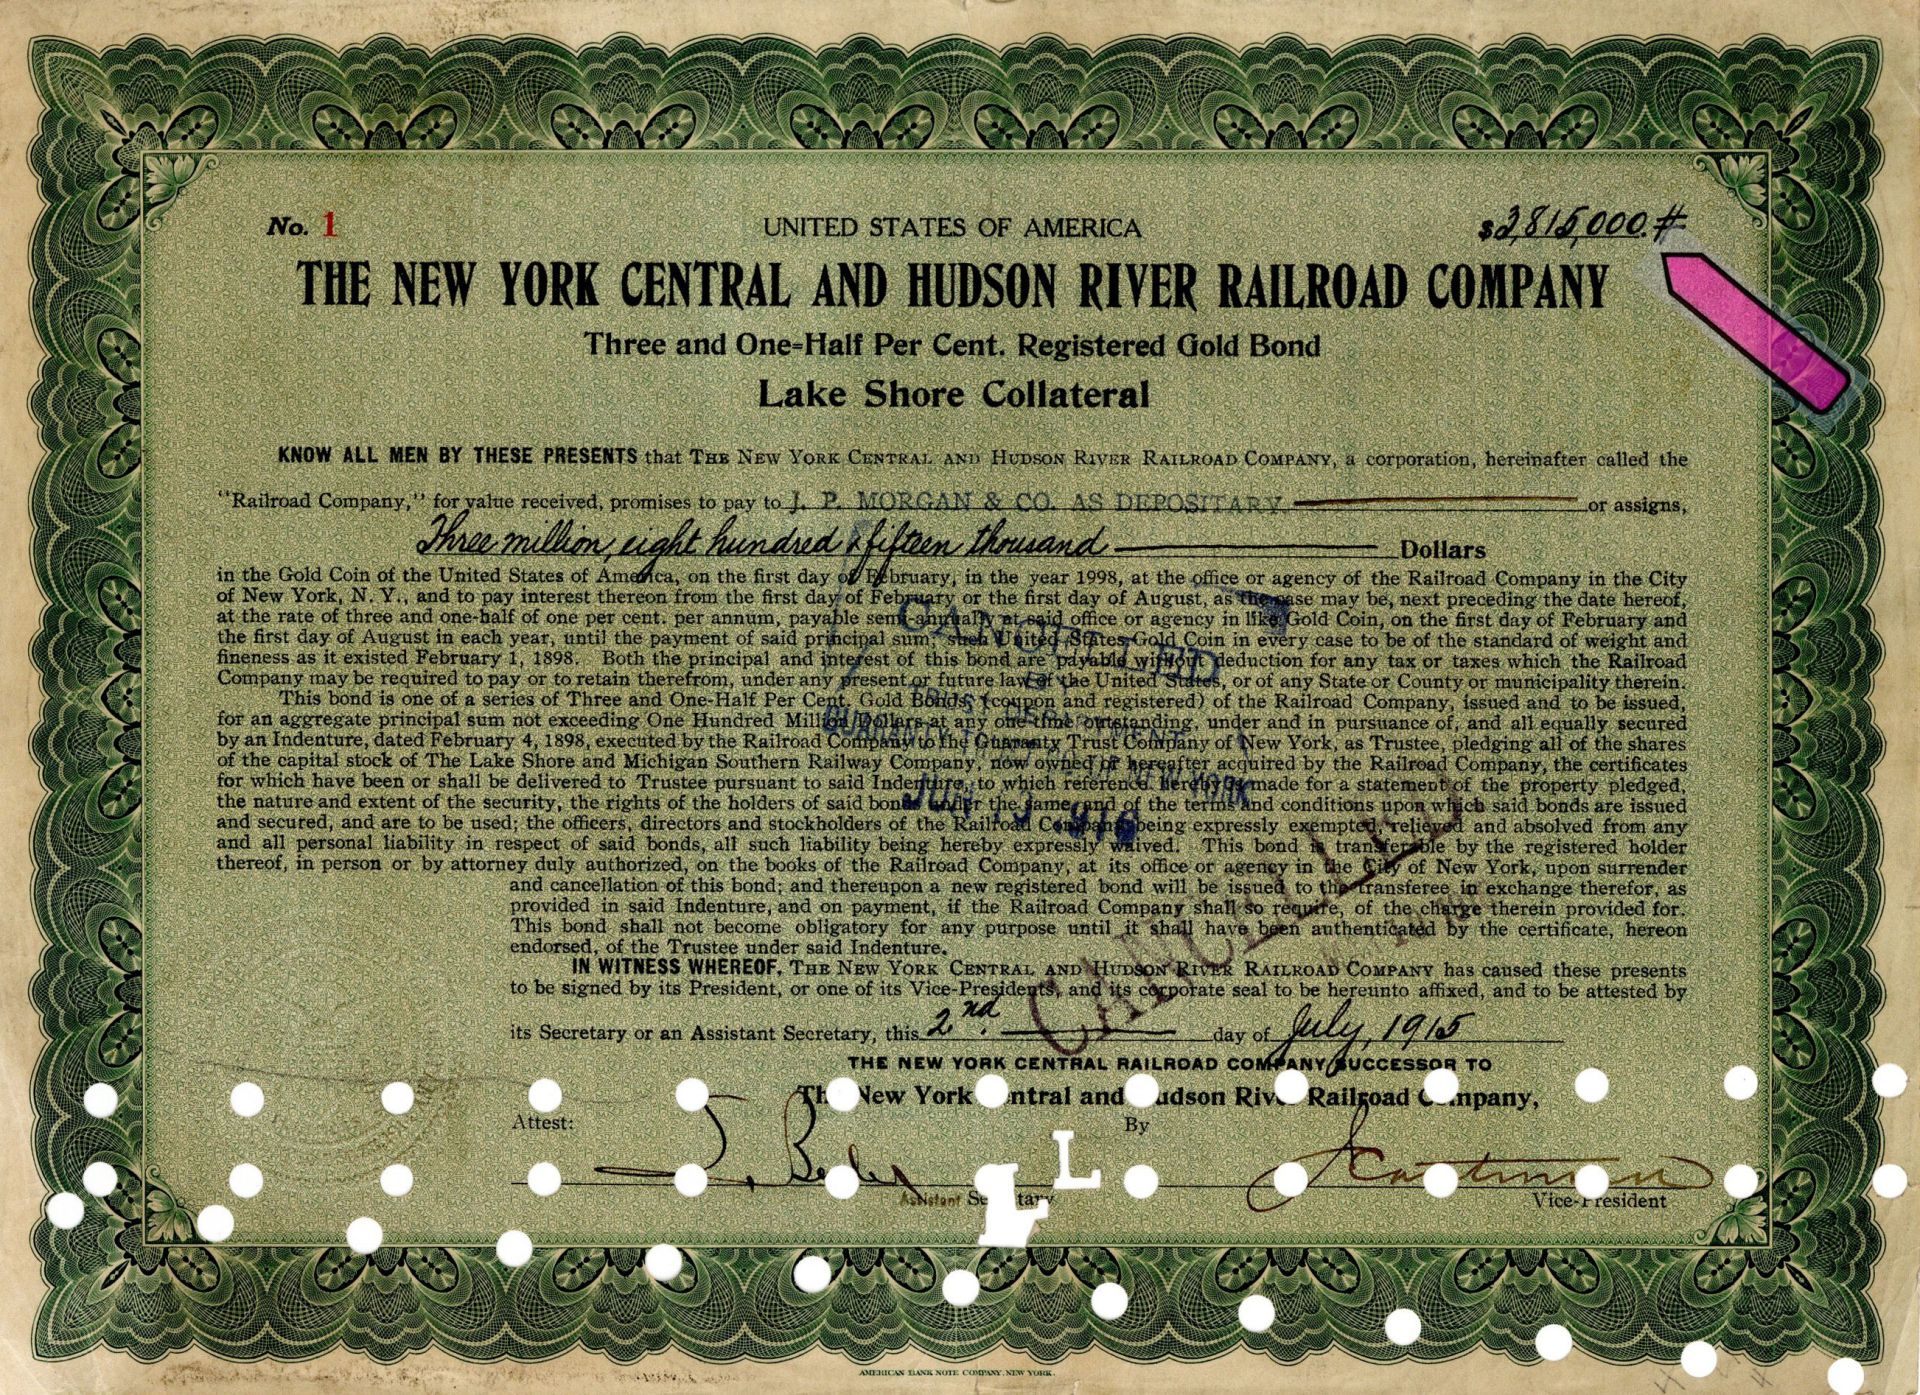 No. 1 UNITED STATES OF AMERICA $3,815,000.#
THE NEW YORK CENTRAL AND HUDSON RIVER RAILROAD COMPANY
Three and One-Half Per Cent. Registered Gold Bond
Lake Shore Collateral
KNOW ALL MEN BY THESE PRESENTS that THE NEW YORK CENTRAL AND HUDSON RIVER RAILROAD COMPANY, a corporation, hereinafter called the
"Railroad Company," for value received, promises to pay to J. P. MORGAN & CO. AS DEPOSITARY or assigns,
Three million, eight hundred & fifteen thousand Dollars
in the Gold Coin of the United States of America, on the first day of February, in the year 1998, at the office or agency of the Railroad Company in the City
of New York, N. Y., and to pay interest thereon from the first day of February or the first day of August, as the case may be, next preceding the date hereof,
at the rate of three and one-half of one per cent. per annum, payable semi-annually at said office or agency in like Gold Coin, on the first day of February and
the first day of August in each year, until the payment of said principal sum, such United States Gold Coin in every case to be of the standard of weight and
fineness as it existed February 1, 1898. Both the principal and interest of this bond are payable without deduction for any tax or taxes which the Railroad
Company may be required to pay or to retain therefrom, under any present or future law of the United States, or of any State or County or municipality therein.
This bond is one of a series of Three and One-Half Per Cent. Gold Bonds, (coupon and registered) of the Railroad Company, issued and to be issued,
for an aggregate principal sum not exceeding One Hundred Million Dollars at any one time outstanding, under and in pursuance of, and all equally secured
by an Indenture, dated February 4, 1898, executed by the Railroad Company to the Guaranty Trust Company of New York, as Trustee, pledging all of the shares
of the capital stock of The Lake Shore and Michigan Southern Railway Company, now owned or hereafter acquired by the Railroad Company, the certificates
for which have been or shall be delivered to Trustee pursuant to said Indenture, to which reference hereby is made for a statement of the property pledged,
the nature and extent of the security, the rights of the holders of said bonds under the same, and of the terms and conditions upon which said bonds are issued
and secured, and are to be used; the officers, directors and stockholders of the Railroad Company being expressly exempted, relieved and absolved from any
and all personal liability in respect of said bonds, all such liability being hereby expressly waived. This bond is transferable by the registered holder
thereof, in person or by attorney duly authorized, on the books of the Railroad Company, at its office or agency in the City of New York, upon surrender
and cancellation of this bond; and thereupon a new registered bond will be issued to the transferee in exchange therefor, as
provided in said Indenture, and on payment, if the Railroad Company shall so require, of the charge therein provided for.
This bond shall not become obligatory for any purpose until it shall have been authenticated by the certificate, hereon
endorsed, of the Trustee under said Indenture.
IN WITNESS WHEREOF, THE NEW YORK CENTRAL AND HUDSON RIVER RAILROAD COMPANY has caused these presents
to be signed by its President, or one of its Vice-Presidents, and its corporate seal to be hereunto affixed, and to be attested by
its Secretary or an Assistant Secretary, this 2nd. day of July, 1915
THE NEW YORK CENTRAL RAILROAD COMPANY SUCCESSOR TO
The New York Central and Hudson River Railroad Company,
Attest: By
Assistant Secretary Vice-President
CANCELLED
TRUST DEPARTMENT
GUARANTY
NEW YORK
CANCELLED
AMERICAN BANK NOTE COMPANY, NEW YORK.